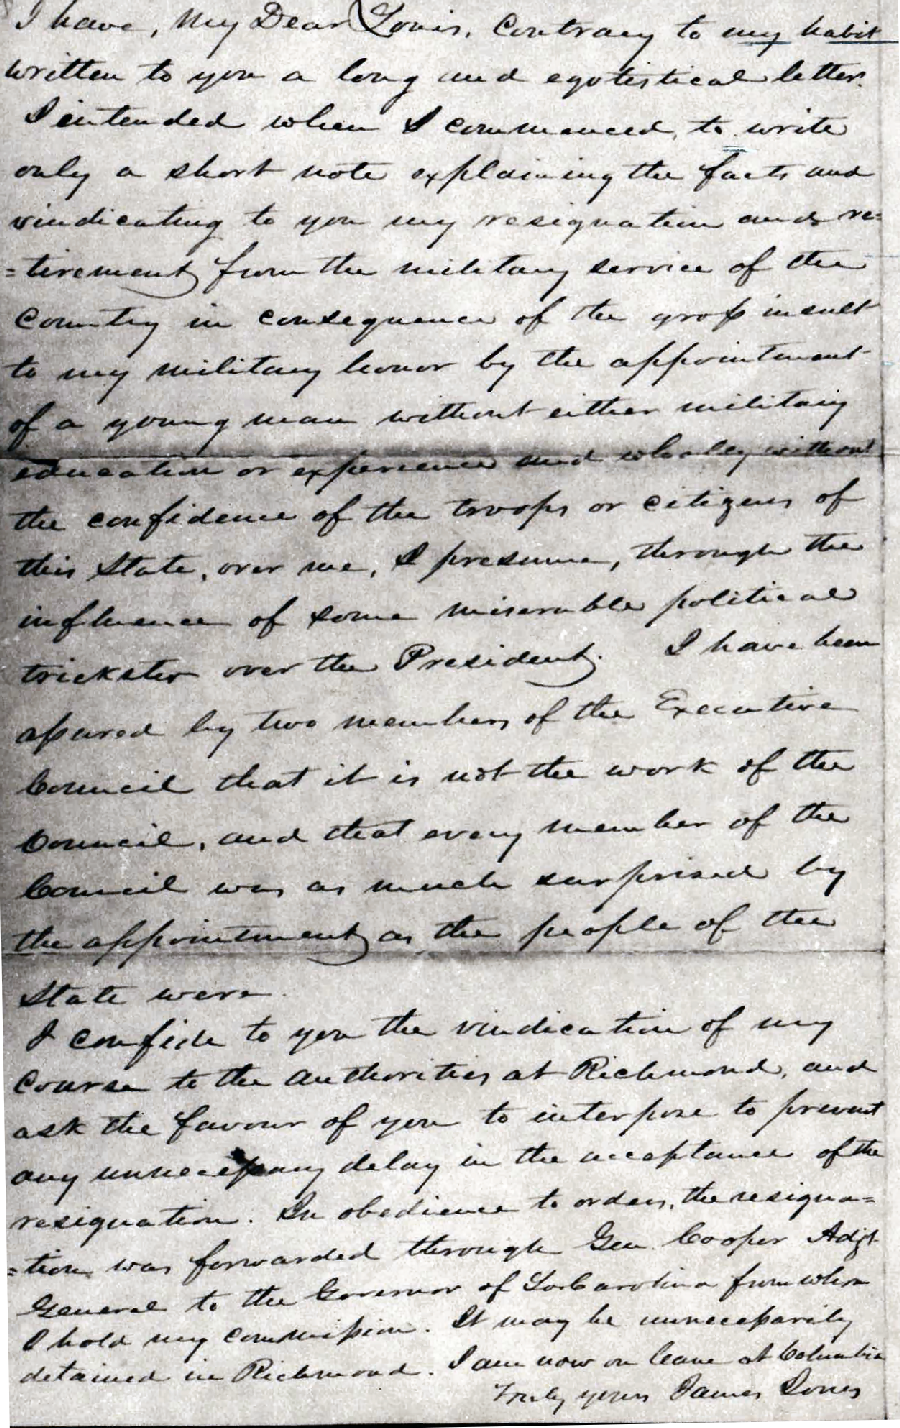 I have, My Dear Louis, Contrary to my habit
written to you a long and egotistical letter.
I intended when I commenced, to write
only a short note explaining the facts and
vindicating to you my resignation and re=
=tirement from the military service of the
Country in consequence of the gross insult
to my military honor by the appointment
of a young man without either military
education or experience and wholey without
the confidence of the troops or citizens of
this State, over me, I presume, through the
influence of some miserable political
trickster over the President. I have been
assured by two members of the Executive
Council that it is not the work of the
Council, and that every member of the
Council was as much surprised by
the appointment as the people of the
State were.
I confide to you the vindication of my
course to the authorities at Richmond, and
ask the favour of you to interpose to prevent
any unnecessary delay in the acceptance of the
resignation. In obedience to orders, the resigna=
=tion was forwarded through Gen. Cooper Adjt
General to the Governor of So Carolina from whom
I hold my commission. It may be unnecessarily
detained in Richmond. I am now on leave at Columbia
Truly yours James Jones